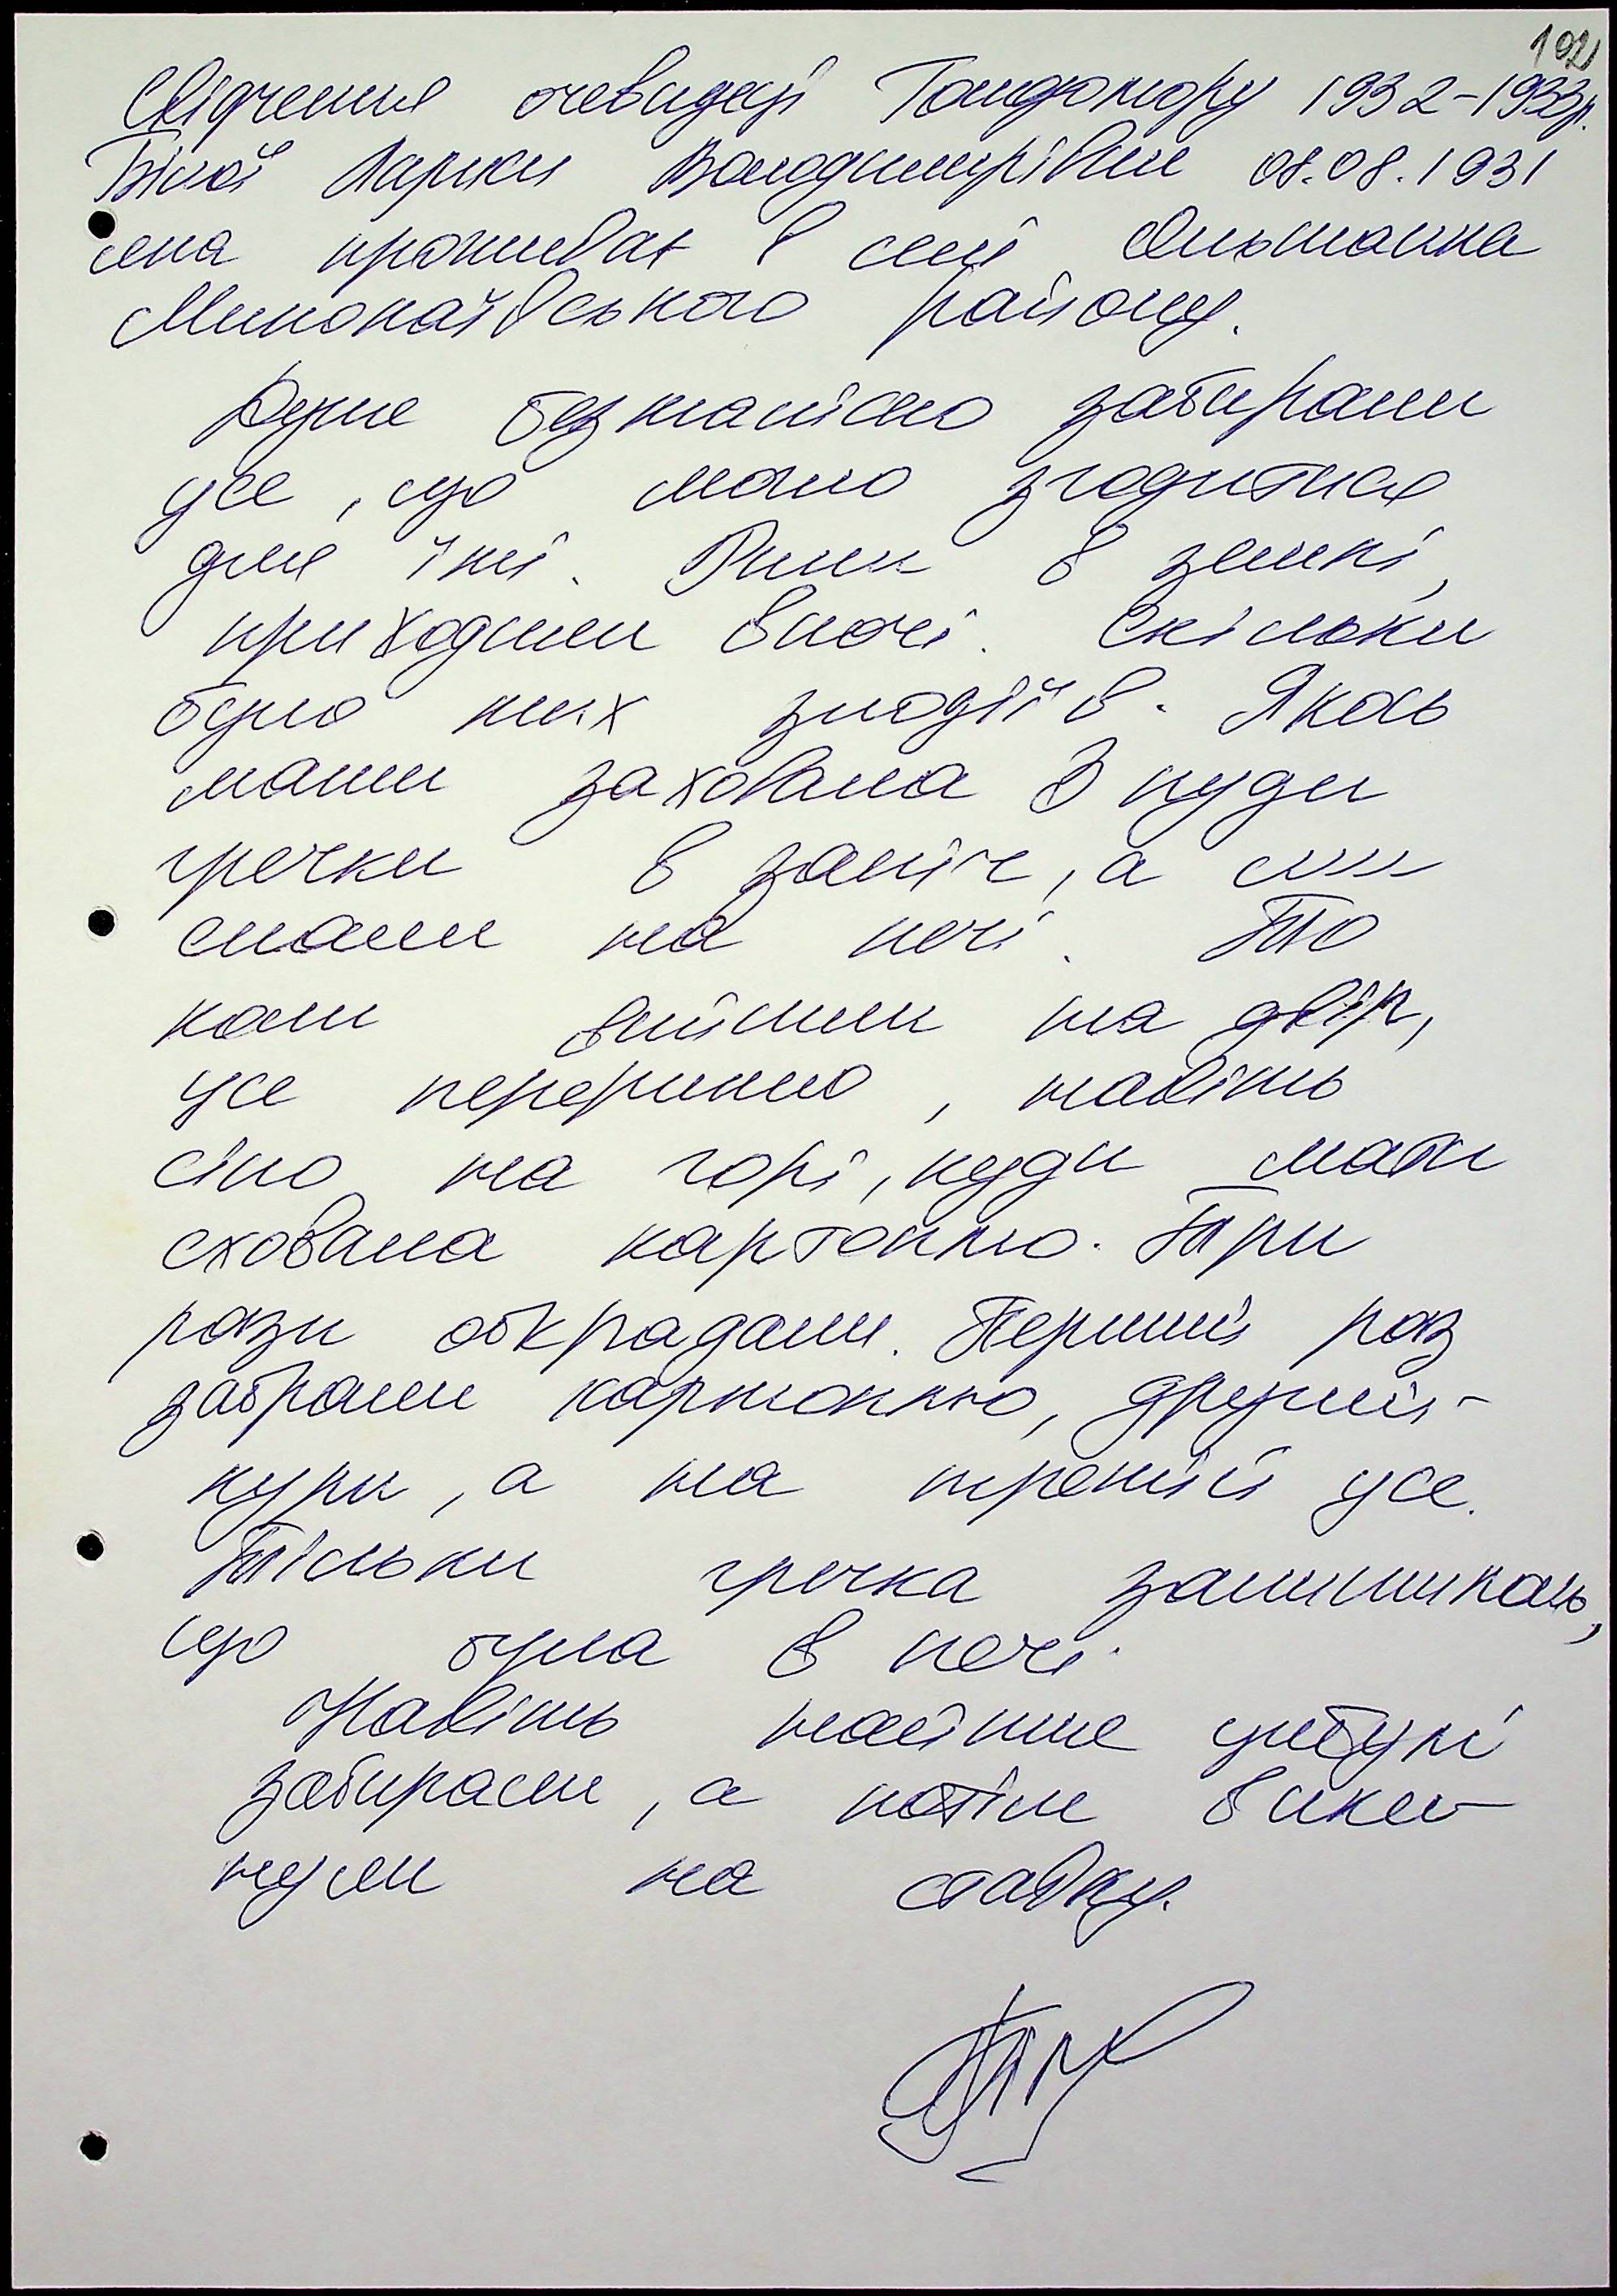 192
Свідчення очевидці Голодомору 1932-1933р.
Білої Марії Володимирівни 08.08.1931
яка проживає в селі Ольшанка
Миколаївського району.
Дуже безжалісно забирали
усе, що мало згодитися
для їжі. Рили в землі,
приходили вночі. Скільки
було них злодіїв. Якось
мати заховала 3 пуди
гречки в запіч, а ми
спали на печі. То
коли вийшли на двір,
усе перерило, навіть
сіно на горі, куди мати
сховала картоплю. Три
рази обкрадали. Перший раз
забрали картоплю, другий -
кури, а на третій усе.
Тільки гречка залишилась,
що була в печі.
Навіть насіння цибулі
забирали, а потім вики-
нули на ставку.